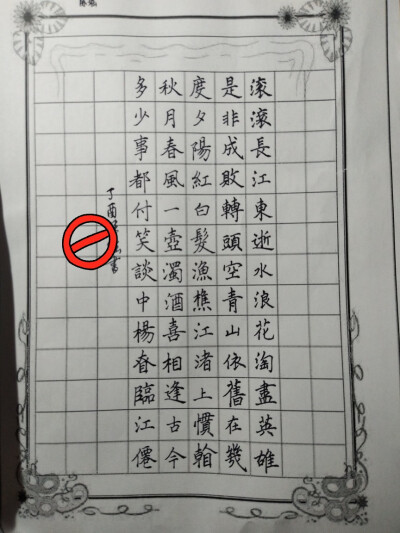 滚滚長江東逝水浪花淘盡英雄
是非成敗轉頭空青山依舊在幾
度夕陽紅白髮漁樵江渚上慣
秋月春風一壺濁酒喜相逢古今
多少事都付笑談中楊眘臨江僊
丁酉 書